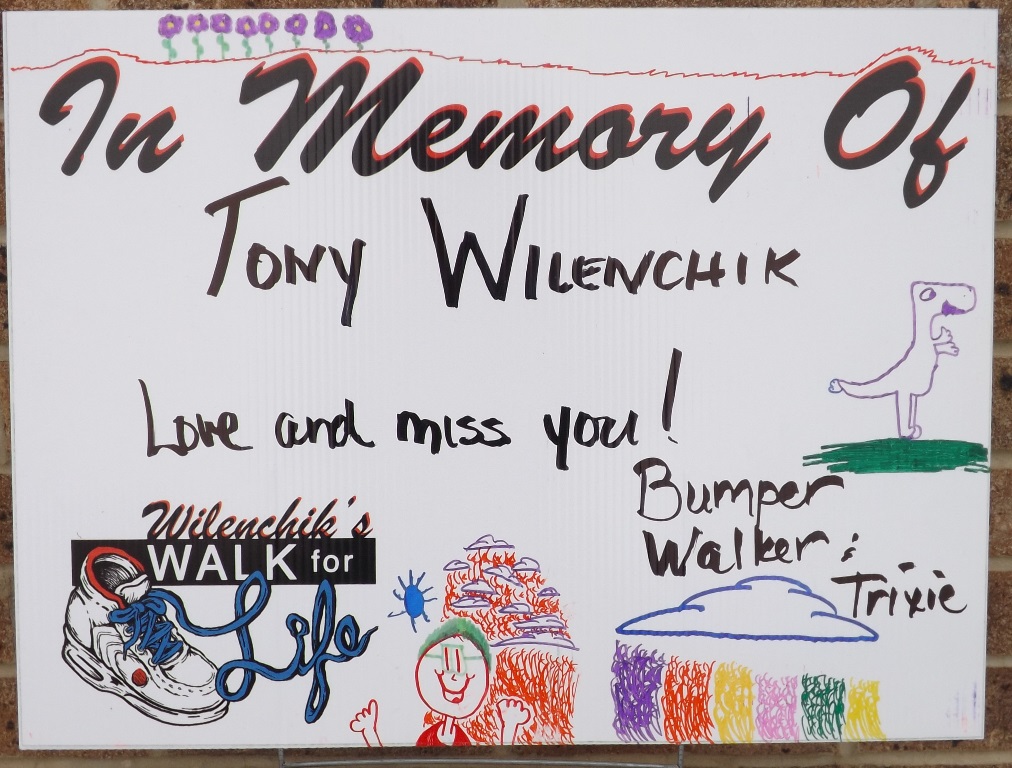 In Memory Of
TONY WILENCHIK
Love and miss you!
Bumper
Walker &
Trixie
Wilenchik's
WALK for
Life